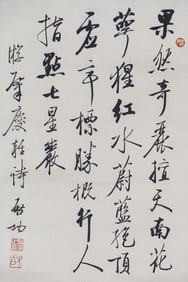 果然奇麗擅天南花
萼猩紅水蔚藍絕頂
虛亭標勝概行人
指點七星巖
游肇慶雜詩 啟功